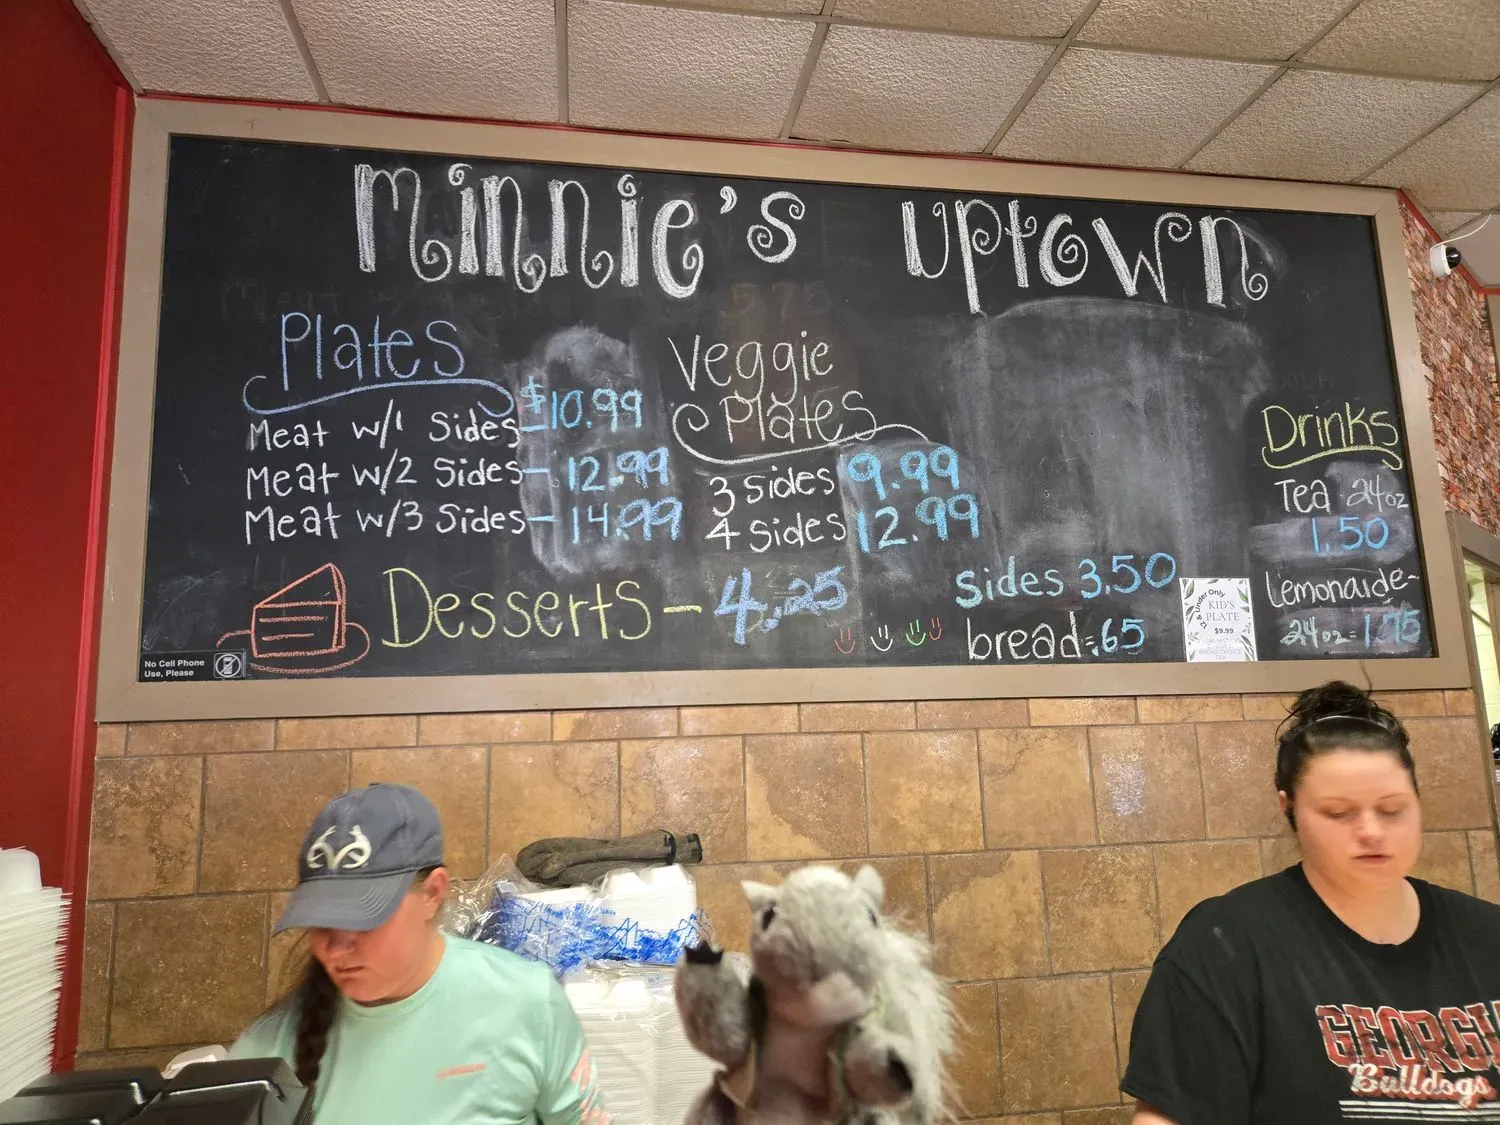 Minnie's Uptown
Plates
Meat w/1 Sides - $10.99
Meat w/2 Sides - 12.99
Meat w/3 Sides - 14.99
Veggie
Plates
3 Sides 9.99
4 Sides 12.99
Desserts - 4.25
Sides 3.50
bread = .65
Drinks
Tea 24oz
1.50
Lemonaide -
24oz = 1.75
12 & Under Only
KID'S
PLATE
$9.99
BREAD CHOICE
TEA
No Cell Phone
Use, Please
GEORGI
Bulldogs